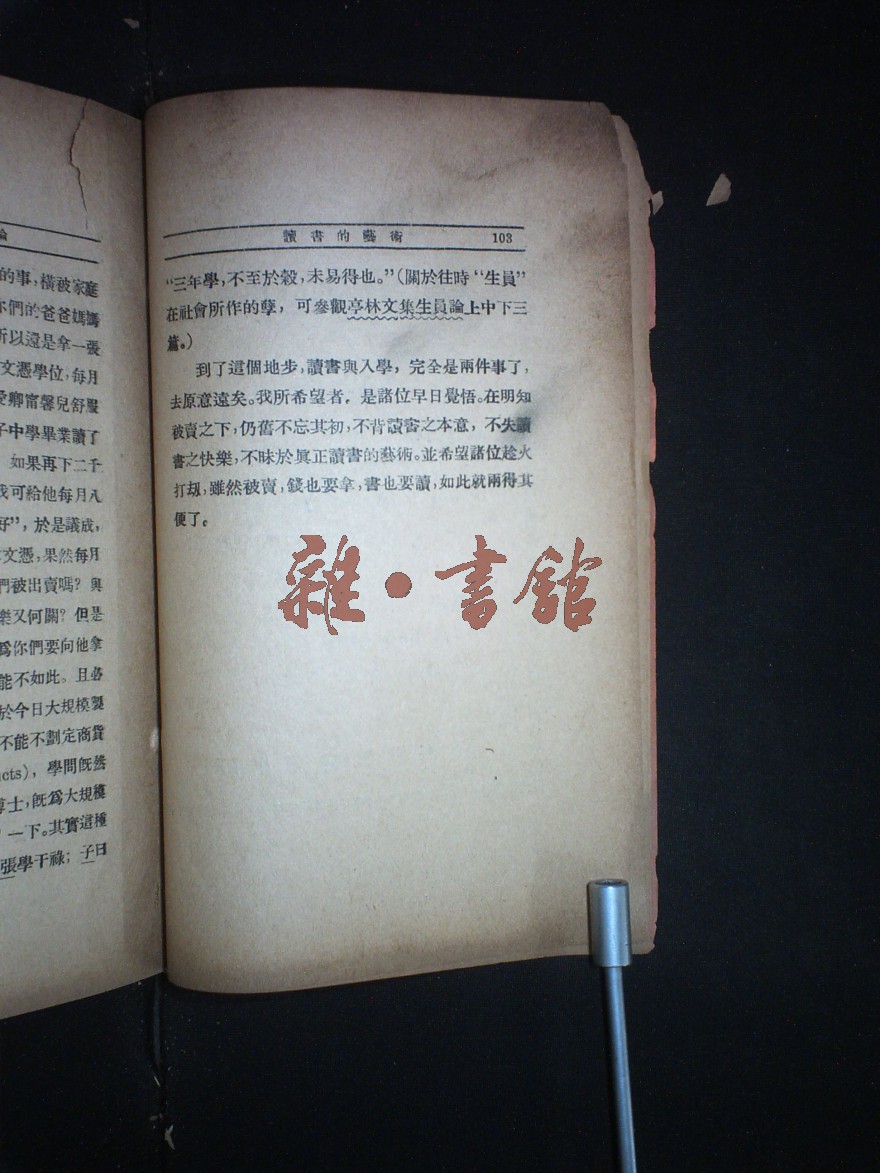 論
的事，橫被家庭
你們的爸爸媽媽
所以還是拿一張
文憑學位，每月
愛卿甯馨兒舒服
子中學畢業讀了
如果再下二千
我可給他每月八
好”，於是議成，
文憑，果然每月
們被出賣嗎？與
樂又何關？但是
爲你們要向他拿
能不如此。且必
於今日大規模製
不能不劃定商貨
cts)，學問旣然
博士，旣爲大規模
一下。其實這種
張學干祿；子曰
讀書的藝術 103
“三年學，不至於穀，未易得也。”（關於往時“生員”
在社會所作的孽，可參觀亭林文集生員論上中下三
篇。）
到了這個地步，讀書與入學，完全是兩件事了，
去原意遠矣。我所希望者，是諸位早日覺悟。在明知
被賣之下，仍舊不忘其初，不背讀書之本意，不失讀
書之快樂，不昧於眞正讀書的藝術。並希望諸位趁火
打刼，雖然被賣，錢也要拿，書也要讀，如此就兩得其
便了。
雜·書館